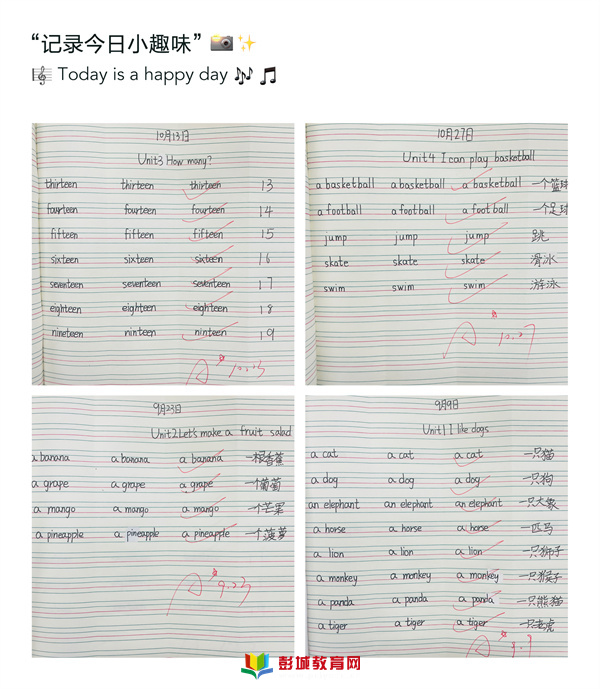 “记录今日小趣味” 📷✨
🎼 Today is a happy day 🎶 🎵
10月13日
Unit3 How many?
thirteen thirteen thirteen 13
fourteen fourteen fourteen 14
fifteen fifteen fifteen 15
sixteen sixteen sixteen 16
seventeen seventeen seventeen 17
eighteen eighteen eighteen 18
nineteen ninteen ninteen 19
A 10.13
10月27日
Unit4 I can play basketball
a basketball a basketball a basketball 一个篮球
a football a football a football 一个足球
jump jump jump 跳
skate skate skate 滑冰
swim swim swim 游泳
A 10.27
9月23日
Unit2 Let's make a fruit salad
a banana a banana a banana 一根香蕉
a grape a grape a grape 一个葡萄
a mango a mango a mango 一个芒果
a pineapple a pineapple a pineapple 一个菠萝
A 9.23
9月9日
Unit1 I like dogs
a cat a cat a cat 一只猫
a dog a dog a dog 一只狗
an elephant an elephant an elephant 一只大象
a horse a horse a horse 一匹马
a lion a lion a lion 一只狮子
a monkey a monkey a monkey 一只猴子
a panda a panda a panda 一只熊猫
a tiger a tiger a tiger 一只老虎
A 9.9
彭城教育网